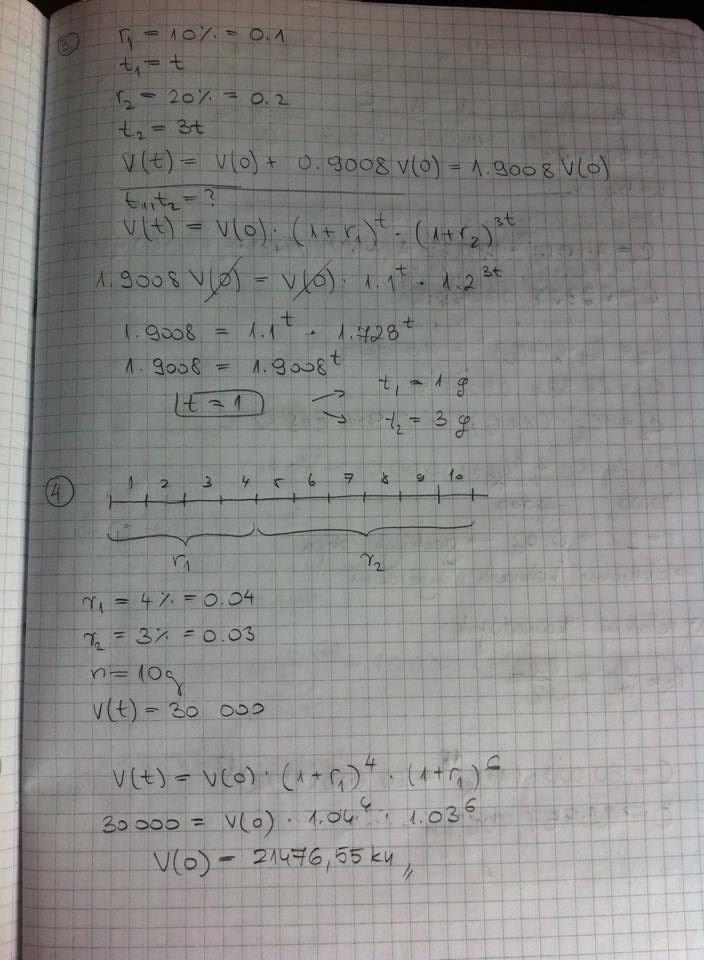 ③ r₁ = 10% = 0.1
t₁ = t
r₂ = 20% = 0.2
t₂ = 3t
V(t) = V(0) + 0.9008 V(0) = 1.9008 V(0)
t₁, t₂ = ?
V(t) = V(0) · (1+r₁)ᵗ · (1+r₂)³ᵗ
1.9008 V(0) = V(0) · 1.1ᵗ · 1.2³ᵗ
1.9008 = 1.1ᵗ · 1.728ᵗ
1.9008 = 1.9008ᵗ
t = 1 → t₁ = 1 g
→ t₂ = 3 g
④ 1 2 3 4 5 6 7 8 9 10
r₁ r₂
r₁ = 4% = 0.04
r₂ = 3% = 0.03
n = 10g
V(t) = 30 000
V(t) = V(0) · (1+r₁)⁴ · (1+r₁)⁶
30000 = V(0) · 1.04⁴ · 1.03⁶
V(0) = 21476,55 kn